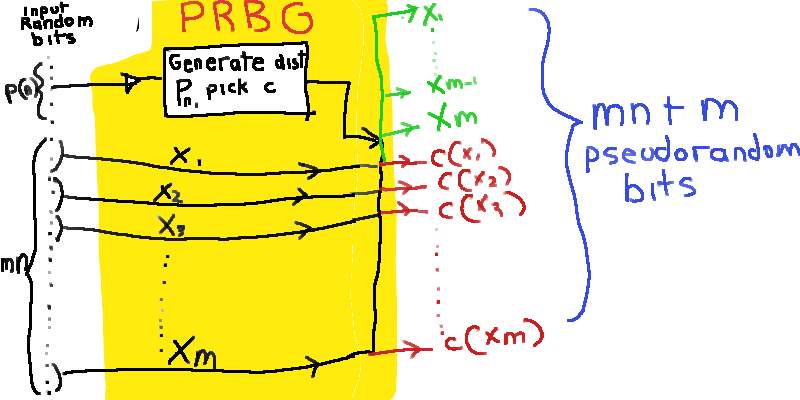 Input
Random
bits
PRBG
P(n)
Generate dist
Pn, pick c
X1
X2
X3
Xm
mn
X1
Xm-1
Xm
c(x1)
c(x2)
c(x3)
c(xm)
mn + m
pseudorandom
bits